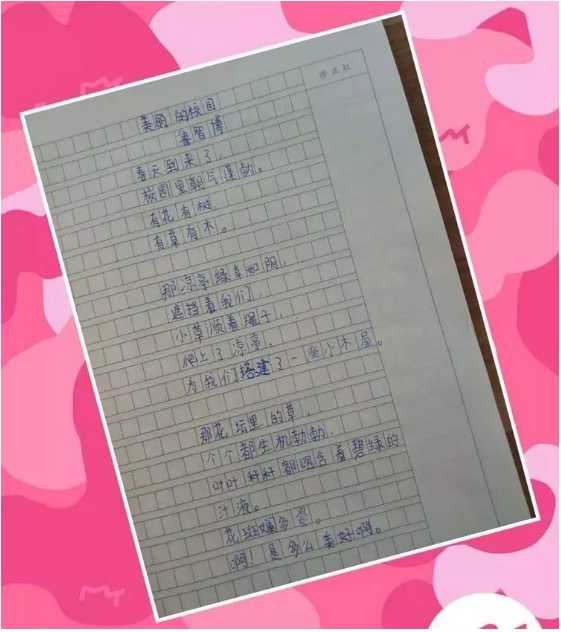 美丽的校园
鲁智博
春天到来了，
校园里朝气蓬勃。
有花有树，
有草有木。
那凉亭绿草如阴，
遮挡着我们
小草顺着绳子，
爬上了凉亭，
为我们搭建了一座小木屋。
那花坛里的草，
个个都生机勃勃，
叶叶杆杆都吸含着碧绿的
汁液。
花斑斓多姿。
啊！是多么美好啊。